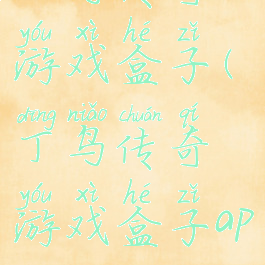 yóu xì hé zǐ
游戏盒子(
dīng niǎo chuán qí
丁鸟传奇
yóu xì hé zǐ
游戏盒子ap